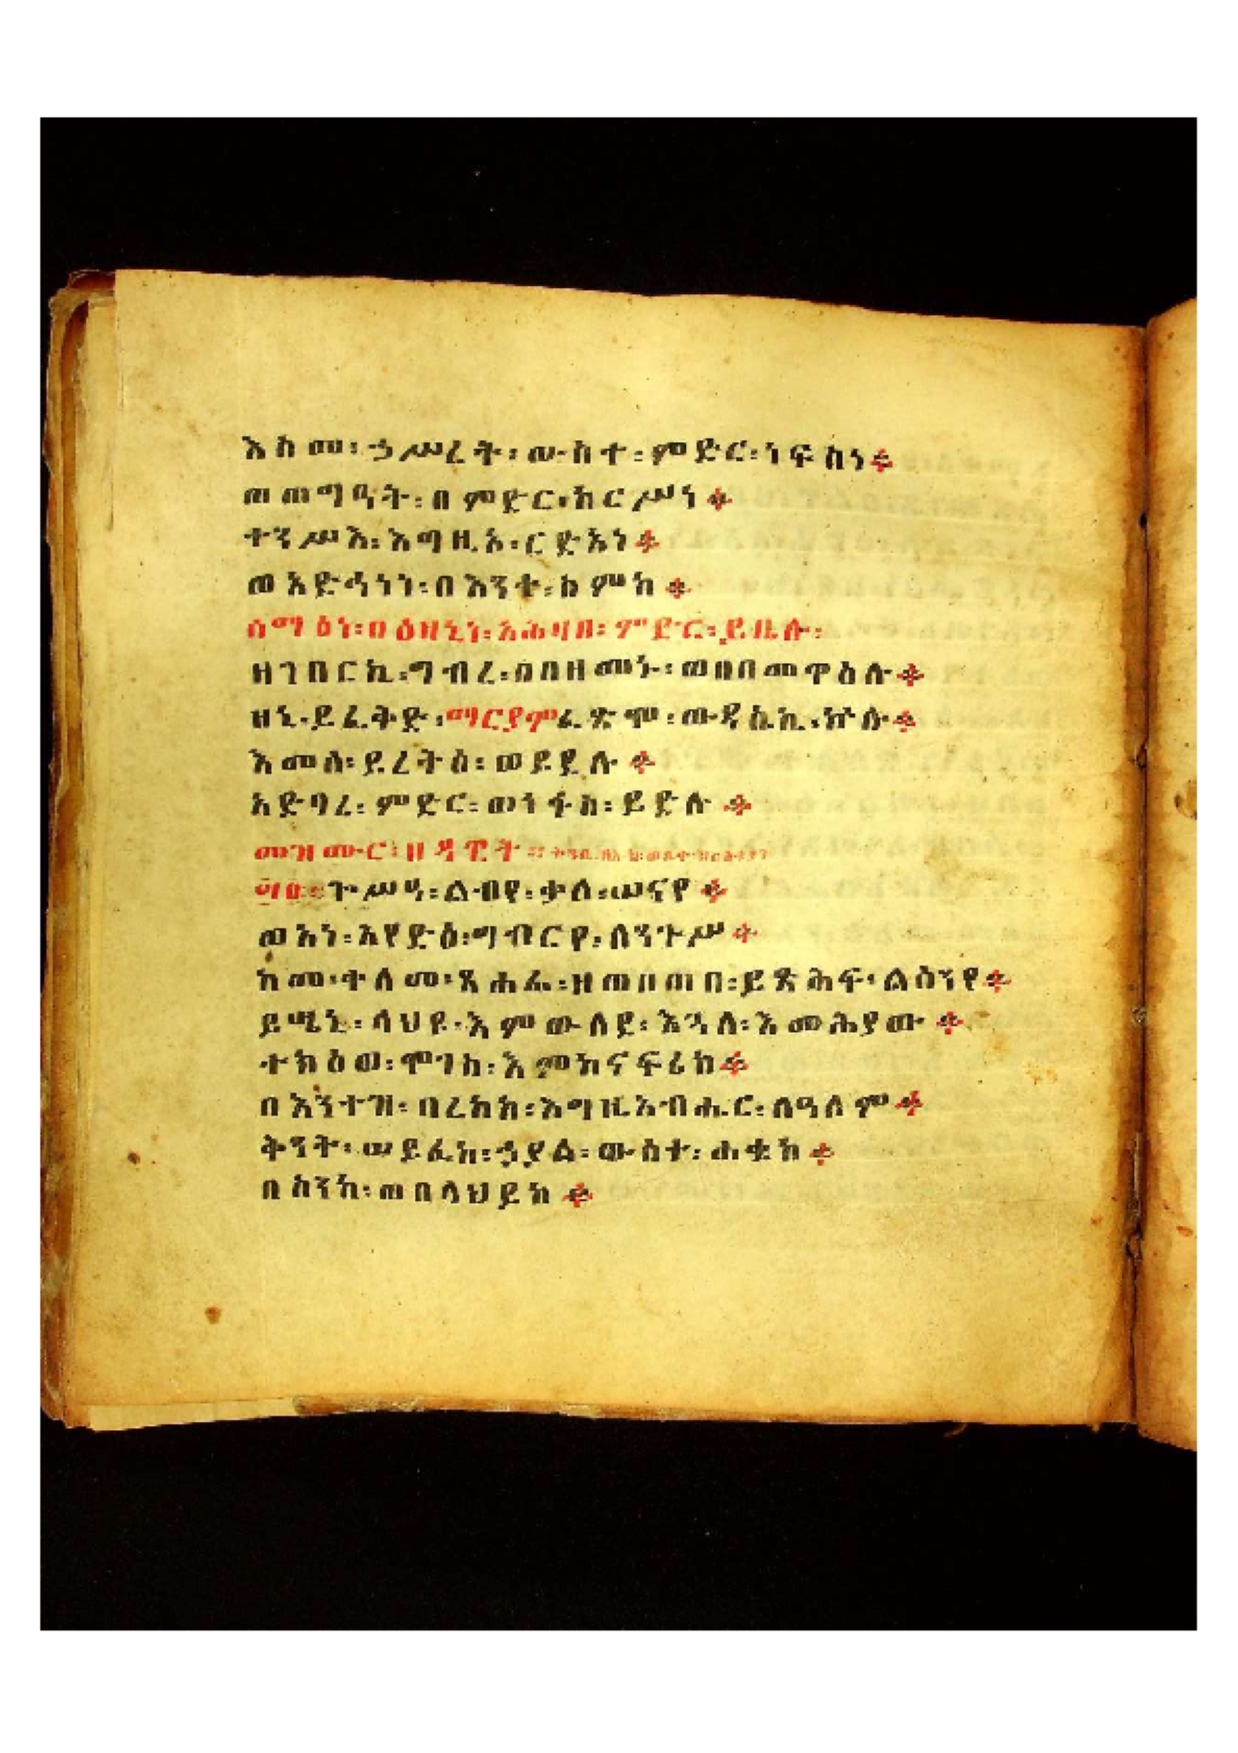 እስመ፡ኃሥረት፡ውስተ፡ምድር፡ነፍስነ፨
ወጠግዓት፡በምድር፡ከርሥነ፨
ተንሥእ፡እግዚኦ፡ርድአነ፨
ወአድኅነነ፡በእንተ፡ስምከ፨
ሰማዕነ፡በዕዘኒነ፡አሕዛበ፡ምድር፡ይዜሉ፡
ዘገበርኪ፡ግብረ፡በበዘመኑ፡ወበበመዋዕሉ፨
ዘኒ፡ይፈትድ፡ማርያምፈጽሞ፡ውዳሴኪ፡ኵሉ፨
እመሰ፡ይረትዕ፡ወይደሉ፨
አድባረ፡ምድር፡ወነፋስ፡ይድሉ፨
መዝሙር፡ዘዳዊት።
ጐሥዓ፡ልብየ፡ቃለ፡ሠናየ፨
ወአነ፡አየድዕ፡ግብርየ፡ለንጉሥ፨
ከመ፡ቀለመ፡ጸሐፊ፡ዘጠበጠበ፡ይጽሕፍ፡ልስንየ፨
ይሜኒ፡ላህዩ፡እምውሉደ፡እጓለ፡እመሕያው፨
ተክዕወ፡ሞገስ፡እምከናፍሪከ፨
በእንተዝ፡ባረከከ፡እግዚአብሔር፡ለዓለም፨
ቅንት፡ሠይፈከ፡ኃያል፡ውስተ፡ሐቌከ፨
በስንከ፡ወበላህይከ፨